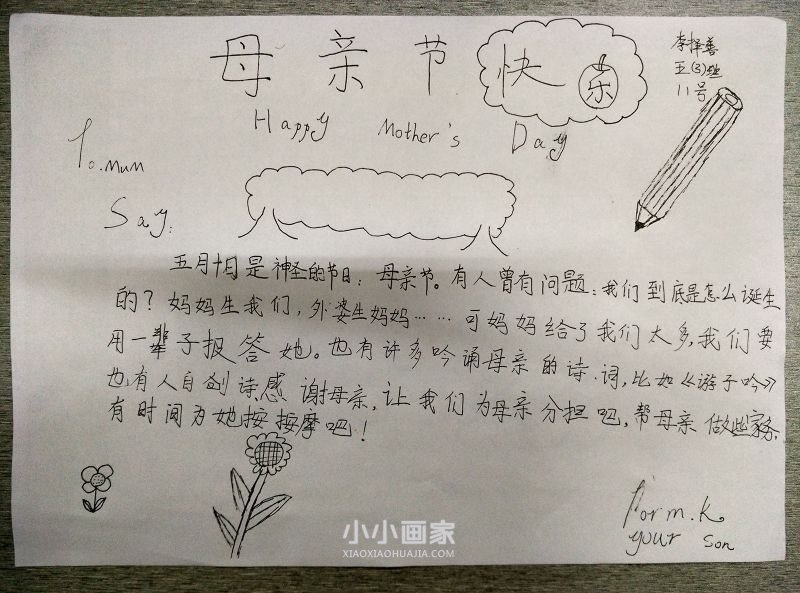 母亲节快乐
李择善
五(3)班
11号
Happy Mother's Day
To.mum
Say:
五月十日是神圣的节日：母亲节。有人曾有问题：我们到底是怎么诞生
的？妈妈生我们，外婆生妈妈……可妈妈给了我们太多，我们要
用一辈子报答她。也有许多吟诵母亲的诗、词，比如《游子吟》
也有人自创诗感谢母亲，让我们为母亲分担吧，帮母亲做些家务，
有时间为她按按摩吧！
Form.k
your son
小小画家
XIAOXIAOHUAJIA.COM